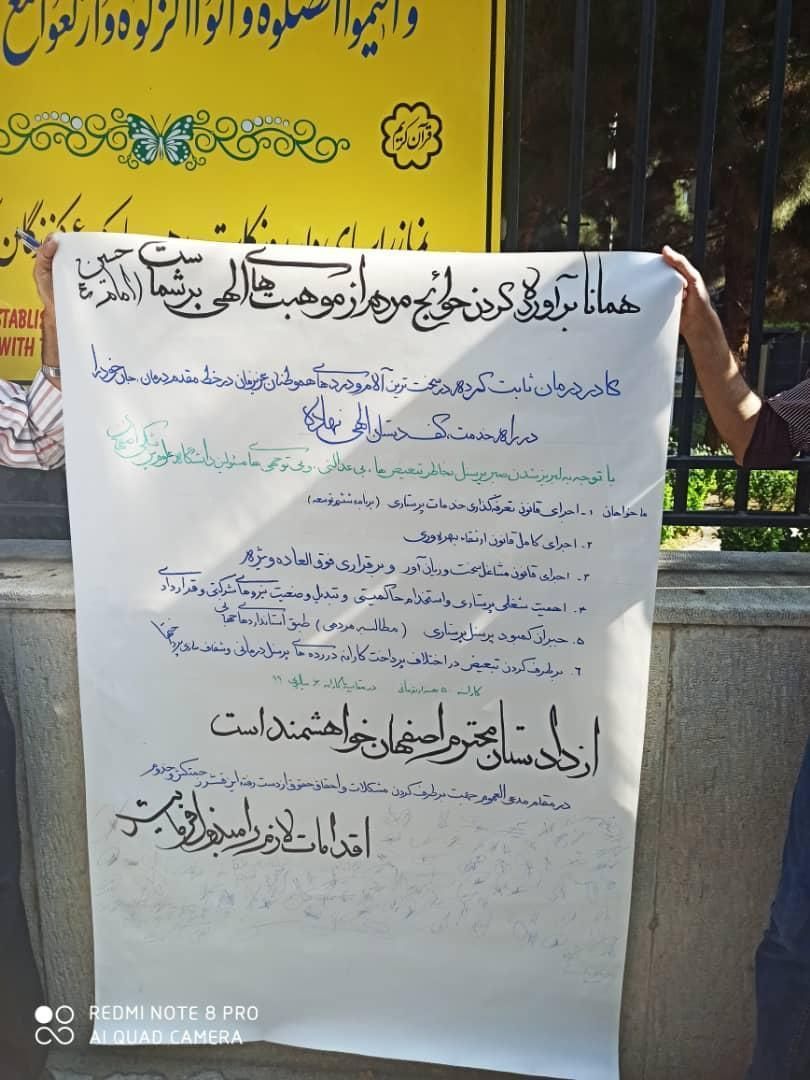 واقیموا الصلوة واتوا الزکوة وارکعوا مع
قرآن کریم
نماز را
STABLIS
WITH
همانا برآورده کردن حوائج مردم از موهبت های الهی بر شماست
(امام حسین ع)
کادر درمان ثابت کرده در سخت ترین آلام و دردهای هموطنان عزیزمان در خط مقدم درمان، جان خود را
در راه خدمت، کف دستان الهی نهاده
با توجه به لبریز شدن صبر پرسنل بخاطر تبعیض ها، بی عدالتی، و بی توجهی ها مسئولین دانشگاه علوم پزشکی اصفهان
ما خواهان ۱- اجرای قانون تعرفه گذاری خدمات پرستاری (برنامه ششم توسعه)
۲. اجرای کامل قانون ارتقاء بهره وری
۳- اجرای قانون مشاغل سخت و زیان آور و برقراری فوق العاده ویژه
۴. امنیت شغلی پرستاری و استخدام حاکمیتی و تبدیل وضعیت نیروهای شرکتی و قراردادی
۵. جبران کمبود پرسنل پرستاری (مطالبه مردمی) طبق استانداردهای جهانی
۶. برطرف کردن تبعیض در اختلاف پرداخت کارانه در رده های پرسنل درمانی و شفاف سازی پرداختها
کارانه ۵۰ هزار تومانی در مقابل کارانه ۶۰ میلیونی !!
از دادستان محترم اصفهان خواهشمند است
در مقام مدعی العموم جهت برطرف کردن مشکلات و احقاق حقوق از دست رفته این قشر زحمتکش و خدوم
اقدامات لازم را مبذول فرمایید
REDMI NOTE 8 PRO
AI QUAD CAMERA